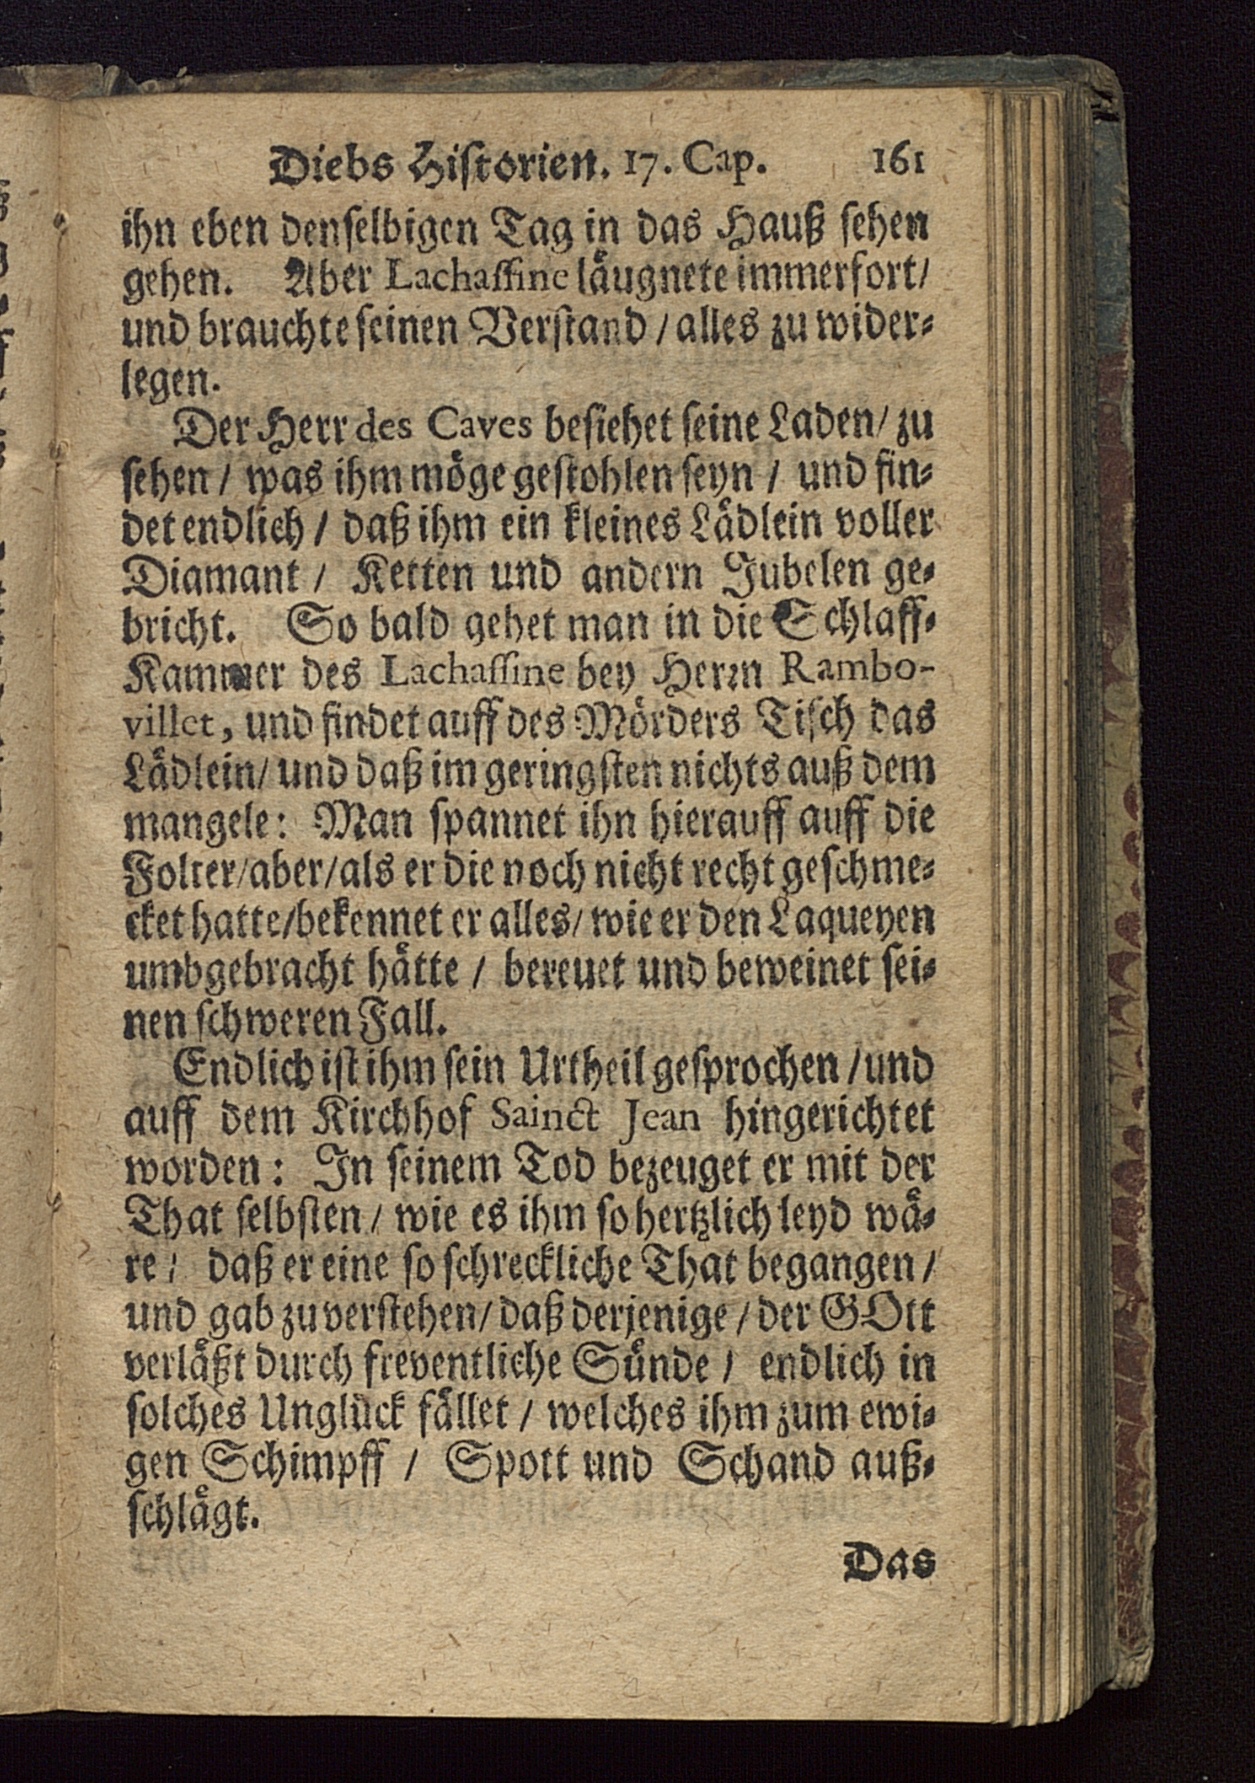 Diebs Historien. 17. Cap. 161
ihn eben denselbigen Tag in das Hauß sehen
gehen. Aber Lachassine läugnete immerfort/
und brauchte seinen Verstand / alles zu wider-
legen.
Der Herr des Caves besiehet seine Laden/ zu
sehen / was ihm möge gestohlen seyn / und fin-
det endlich / daß ihm ein kleines Lädlein voller
Diamant / Ketten und andern Jubelen ge-
bricht. So bald gehet man in die Schlaff-
Kammer des Lachassine bey Herrn Rambo-
villet, und findet auff des Mörders Tisch das
Lädlein/ und daß im geringsten nichts auß dem
mangele: Man spannet ihn hierauff auff die
Folter/aber/als er die noch nicht recht geschme-
cket hatte/bekennet er alles/ wie er den Laqueyen
umbgebracht hätte / bereuet und beweinet sei-
nen schweren Fall.
Endlich ist ihm sein Urtheil gesprochen /und
auff dem Kirchhof Sainct Jean hingerichtet
worden: In seinem Tod bezeuget er mit der
That selbsten / wie es ihm so hertzlich leyd wä-
re / daß er eine so schreckliche That begangen /
und gab zu verstehen/ daß derjenige / der GOtt
verläßt durch freventliche Sünde / endlich in
solches Unglück fället / welches ihm zum ewi-
gen Schimpff / Spott und Schand auß-
schlägt.
Das